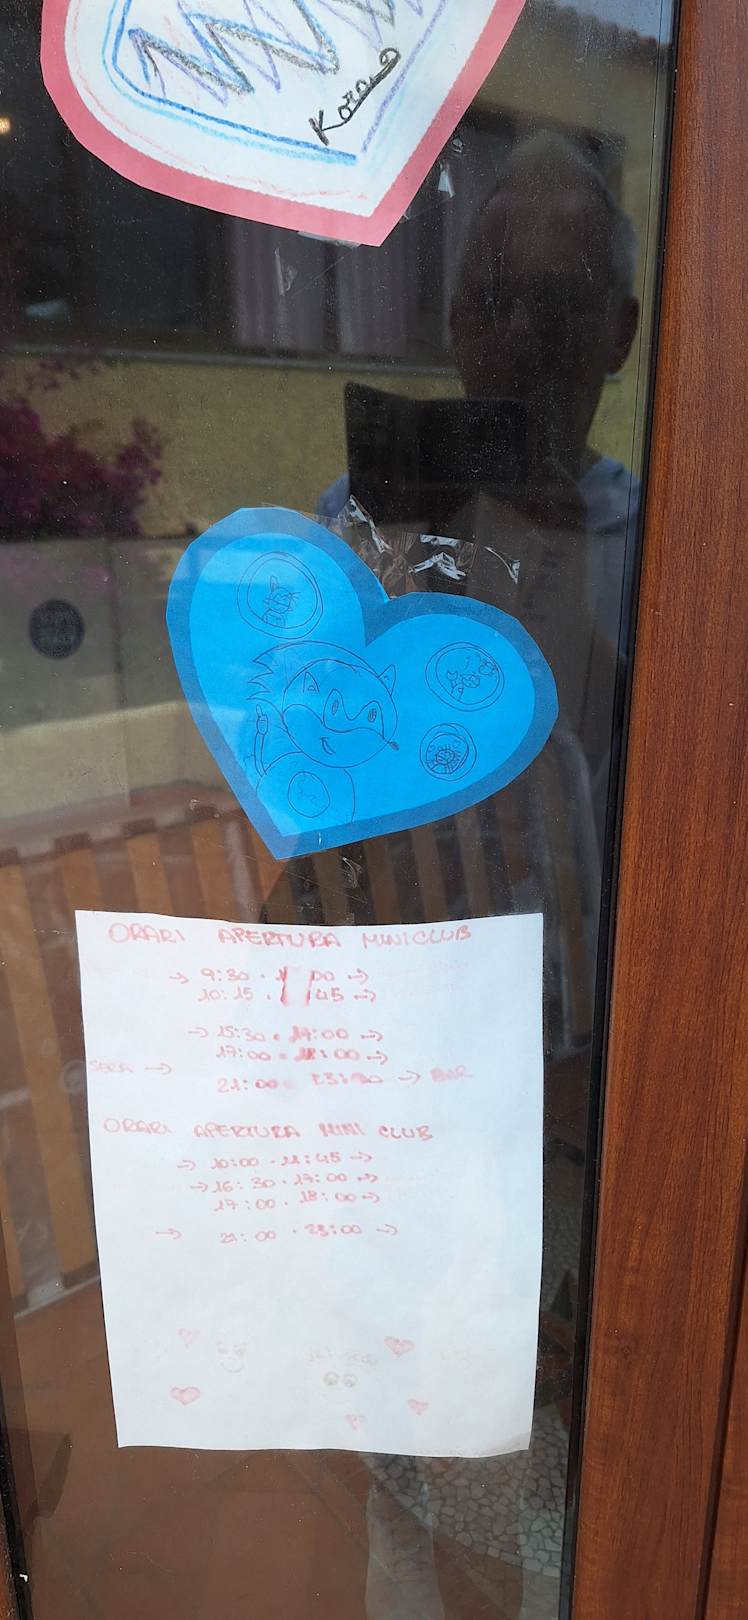 ORARI APERTURA MINICLUB
→ 9:30 · 00 →
10:15 · 45 →
→ 15:30 · 17:00 →
17:00 · 18:00 →
SERA →
21:00 23:30 → BAR
ORARI APERTURA MINI CLUB
→ 10:00 · 11:45 →
→ 16:30 · 17:00 →
17:00 · 18:00 →
→ 21:00 · 23:00 →